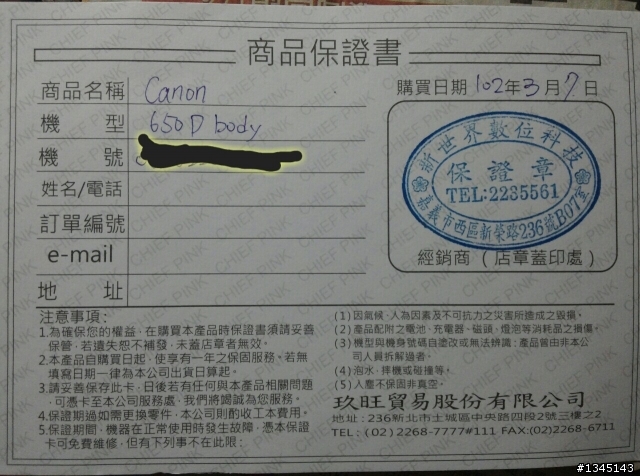 商品保證書
商品名稱 Canon
購買日期 102年3月7日
機型 650D body
機號
姓名/電話
訂單編號
e-mail
地址
新世界數位科技
保證章
TEL:2235561
嘉義市西區新榮路236號B07室
經銷商（店章蓋印處）
注意事項:
1.為確保您的權益，在購買本產品時保證書須請妥善
保管，若遺失恕不補發，未蓋店章者無效。
2.本產品自購買日起，使享有一年之保固服務。若無
填寫日期一律為本公司出貨日算起。
3.請妥善保存此卡，日後若有任何與本產品相關問題
，可憑卡至本公司服務處，我們將竭誠為您服務。
4.保證期過如需更換零件，本公司則酌收工本費用。
5.保證期間，機器在正常使用時發生故障，憑本保證
卡可免費維修，但有下列事不在此限：
(1)因氣候、人為因素及不可抗力之災害所造成之毀損。
(2)產品配附之電池、充電器、磁頭、燈泡等消耗品之損傷。
(3)機型與機身號碼自塗改或無法辨識：產品曾由非本公
司人員拆解過者。
(4)泡水、摔機或碰撞等。
(5)入塵不保固非真空。
玖旺貿易股份有限公司
地址：236新北市土城區中央路四段2號三樓之2
TEL：(02)2268-7777#111 FAX:(02)2268-6711
CHIEF PINK
#1345143